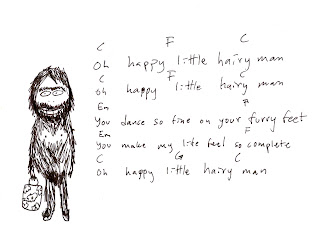 C F C
Oh happy little hairy man
C F C
Oh happy little hairy man
Em F
You dance so fine on your furry feet
Em F
You make my life feel so complete
C G C
Oh happy little hairy man